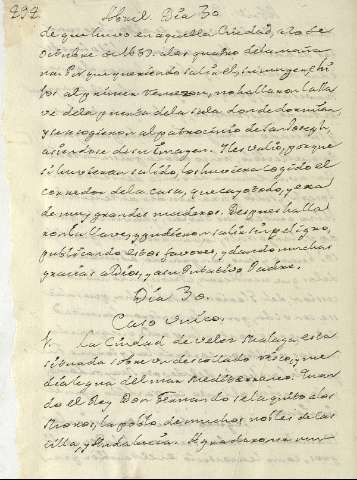 292
Abril Dia 30
de que huvo en aquella Ciudad, a 10 de
Octubre de 1680. a las quatro de la maña
na: Porque queriendo salir el, su muger, è hi
jos al primer vemezon, no hallaron la lla
ve de la puerta de la sala donde dormian,
y se acogieron al patrocinio de San Joseph,
asiendose de su Imagen. Y les valio, porque
si huvieran salido, los huviera cogido el
corredor de la casa, que cayo todo, y era
de muy grandes maderos. Despues halla
ron la llave, y pudieron salir sin peligro,
publicando estos favores, y dando muchas
gracias a Dios, y a su Putativo Padre.
Dia 30.
Caso unico.
1. La Ciudad de Velez Malaga esta
situada sobre un descollado risco, que
dista legua del mar Mediterraneo. Quan
do el Rey Don Fernando se la quito a los
Moros, la poblo de muchos nobles de Cas
tilla, y Andalucia. Agradaronse